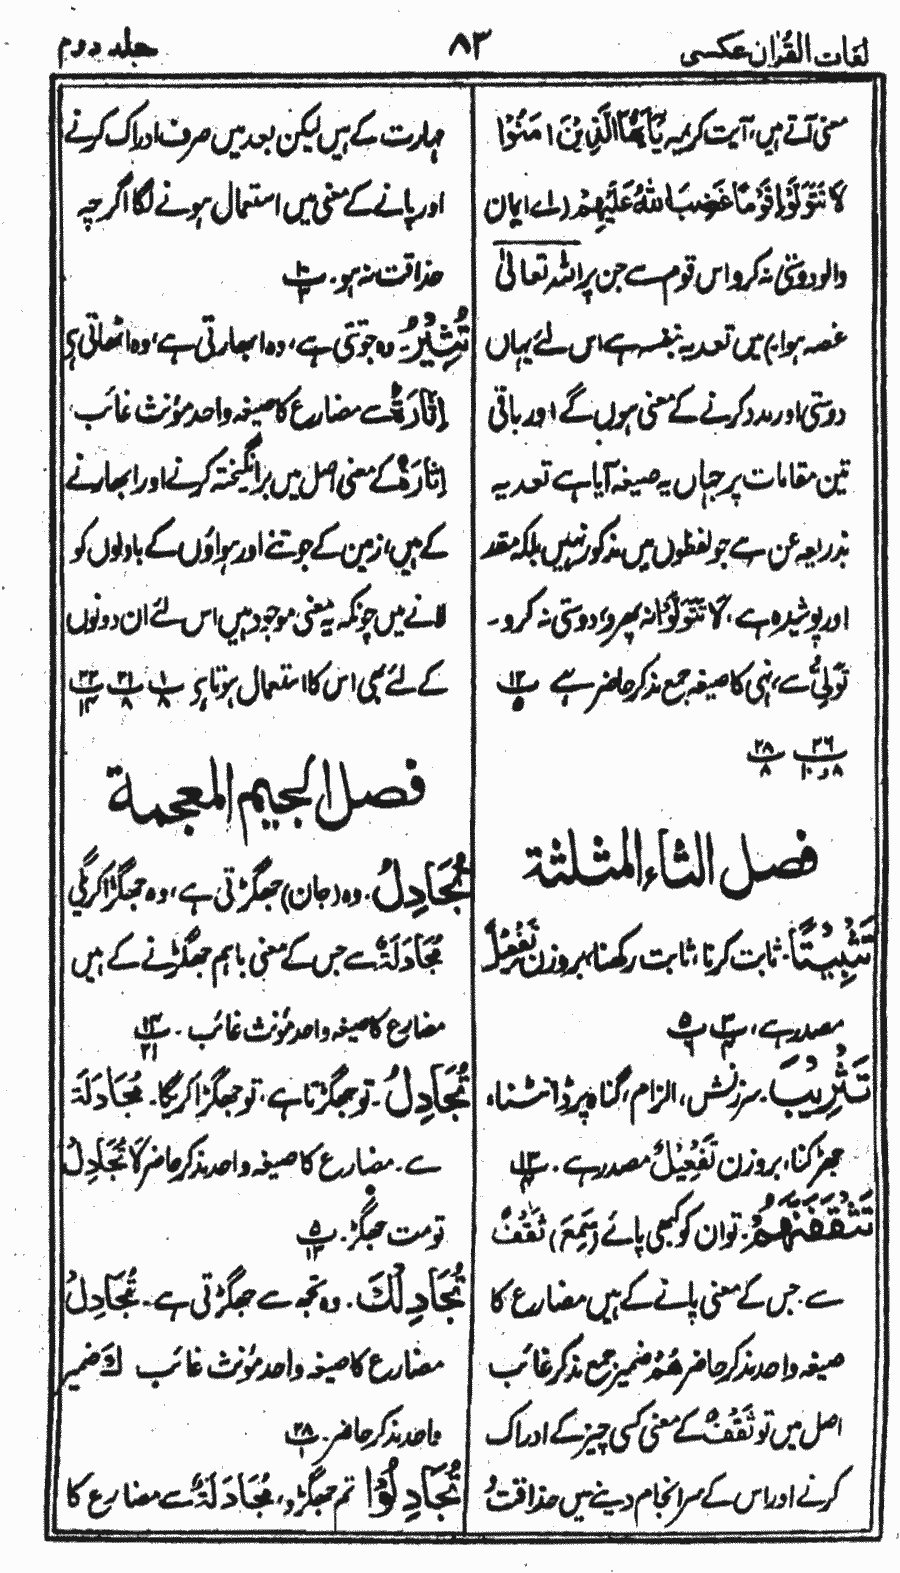 لغات القرآن عکسی
۸۳
جلد دوم
معنی آتے ہیں، آیت کریمہ یٰٓاَیُّهَا الَّذِیْنَ اٰمَنُوْا
لَا تَتَوَلَّوْا قَوْمًا غَضِبَ اللّٰهُ عَلَیْهِمْ (اے ایمان
والو دوستی نہ کرو اس قوم سے جن پر اللہ تعالیٰ
غصہ ہوا ہے) میں تعدیہ بنفسہ ہے اس لئے یہاں
دوستی اور مدد کرنے کے معنی ہوں گے اور باقی
تین مقامات پر جہاں یہ صیغہ آیا ہے تعدیہ
بذریعہ عن ہے جو لفظوں میں مذکور نہیں بلکہ مقدر
اور پوشیدہ ہے، لَا تَتَوَلَّوْا نہ پھرو، دوستی نہ کرو۔
تَوَلِّیْ سے، نہی کا صیغہ جمع مذکر حاضر ہے ۱۲/۵
۲۶/۸ و ۱۰ ۲۸/۸
فصل الثاء المثلثة
تَثْبِیْتًا۔ ثابت کرنا، ثابت رکھنا بہروزن تَفْعِیْلٌ
مصدر ہے، ۳/۴ ۵/۶
تَثْرِیْبَ۔ سرزنش، الزام، گناہ پر ڈانٹنا،
جھڑکنا، بروزن تَفْعِیْلٌ مصدر ہے۔ ۱۳/۴
تَثْقَفَنَّهُمْ۔ تو ان کو کبھی پائے (سَمِعَ) ثَقَفٌ
سے۔ جس کے معنی پانے کے ہیں مضارع کا
صیغہ واحد مذکر حاضر هُمْ ضمیر جمع مذکر غائب
اصل میں تو ثَقَفٌ کے معنی کسی چیز کے ادراک
کرنے اور اس کے سرانجام دینے میں حذاقت و
مہارت کے ہیں لیکن بعد میں صرف ادراک کرنے
اور پانے کے معنی میں استعمال ہونے لگا اگرچہ
حذاقت نہ ہو۔ ۱۰/۳
تُثِیْرُ۔ وہ جوتتی ہے، وہ ابھارتی ہے، وہ اٹھاتی ہے
اِثَارَةٌ سے مضارع کا صیغہ واحد مؤنث غائب
اِثَارَةٌ کے معنی اصل میں برانگیختہ کرنے اور ابھارنے
کے ہیں، زمین کے جوتنے اور ہواؤں کے بادلوں کو
لانے میں چونکہ یہ معنی موجود ہیں اس لئے ان دونوں
کے لئے بھی اس کا استعمال ہوتا ہے ۱/۸ ۲۱/۸ ۲۲/۱۴
فصل الجیم المعجمة
تُجَادِلُ۔ وہ (جان) جھگڑتی ہے، وہ جھگڑا کریگی
مُجَادَلَةٌ سے جس کے معنی باہم جھگڑنے کے ہیں
مضارع کا صیغہ واحد مؤنث غائب۔ ۱۴/۲۱
تُجَادِلُ۔ تو جھگڑتا ہے، تو جھگڑا کریگا۔ مُجَادَلَةٌ
سے۔ مضارع کا صیغہ واحد مذکر حاضر لَا تُجَادِلْ
تو مت جھگڑ۔ ۵/۱۳
تُجَادِلُكَ۔ وہ تجھ سے جھگڑتی ہے۔ تُجَادِلُ
مضارع کا صیغہ واحد مؤنث غائب كَ ضمیر
واحد مذکر حاضر۔ ۲۸/۱
تُجَادِلُوْا تم جھگڑو، مُجَادَلَةٌ سے مضارع کا